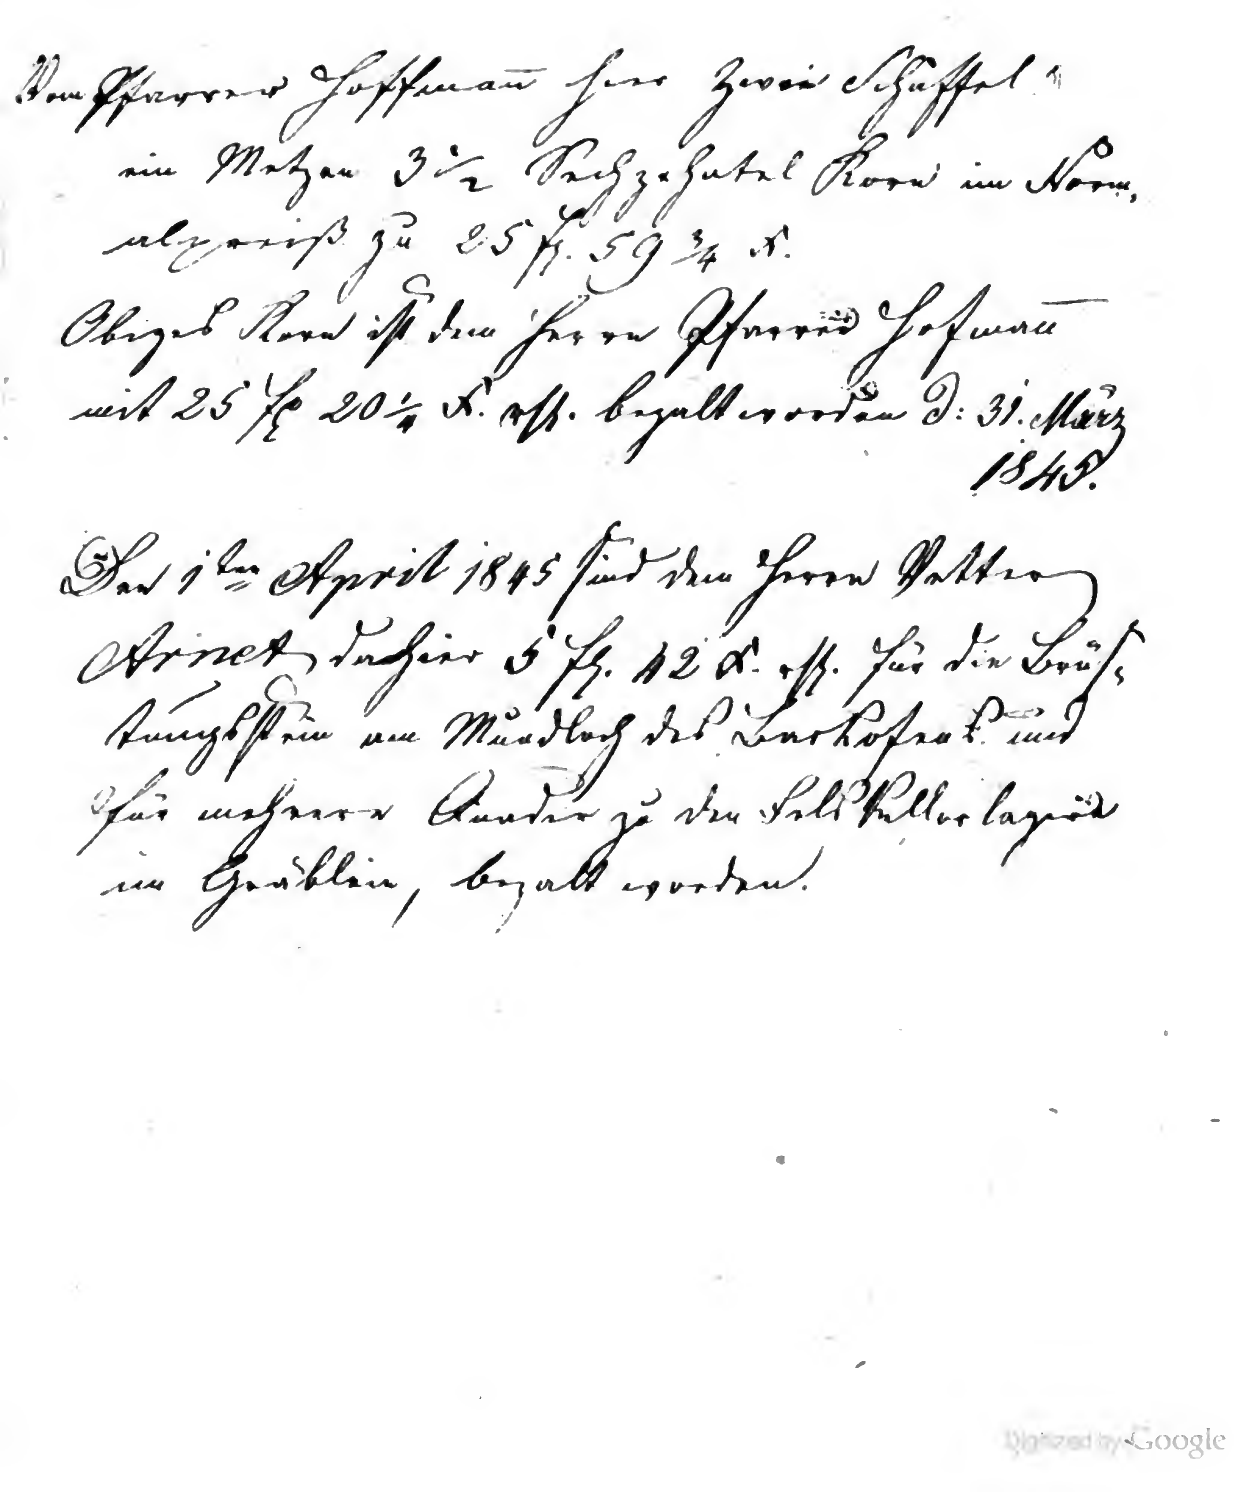 Vom Pfarrer Hoffman̅ hier zwei Schäffel
ein Metzen 3 1/2 Sechzehntel Korn im Norm„
alpreiß zu 25 fl. 59 3/4 X.
Obiges Korn ist dem Herrn Pfarrer Hofman̅
mit 25 fl 20 1/4 X. rh. bezalt worden d: 31. März
1845.
Den 1ten April 1845 sind dem Herrn Vetter
Arnet dahier 5 fl. 42 X. rh. für die Brüs„
tungsstein am Mundloch des Backofens und
für mehrere Quader zu den Felskellerlagern
im Gräblein, bezalt worden.
Digitized by Google